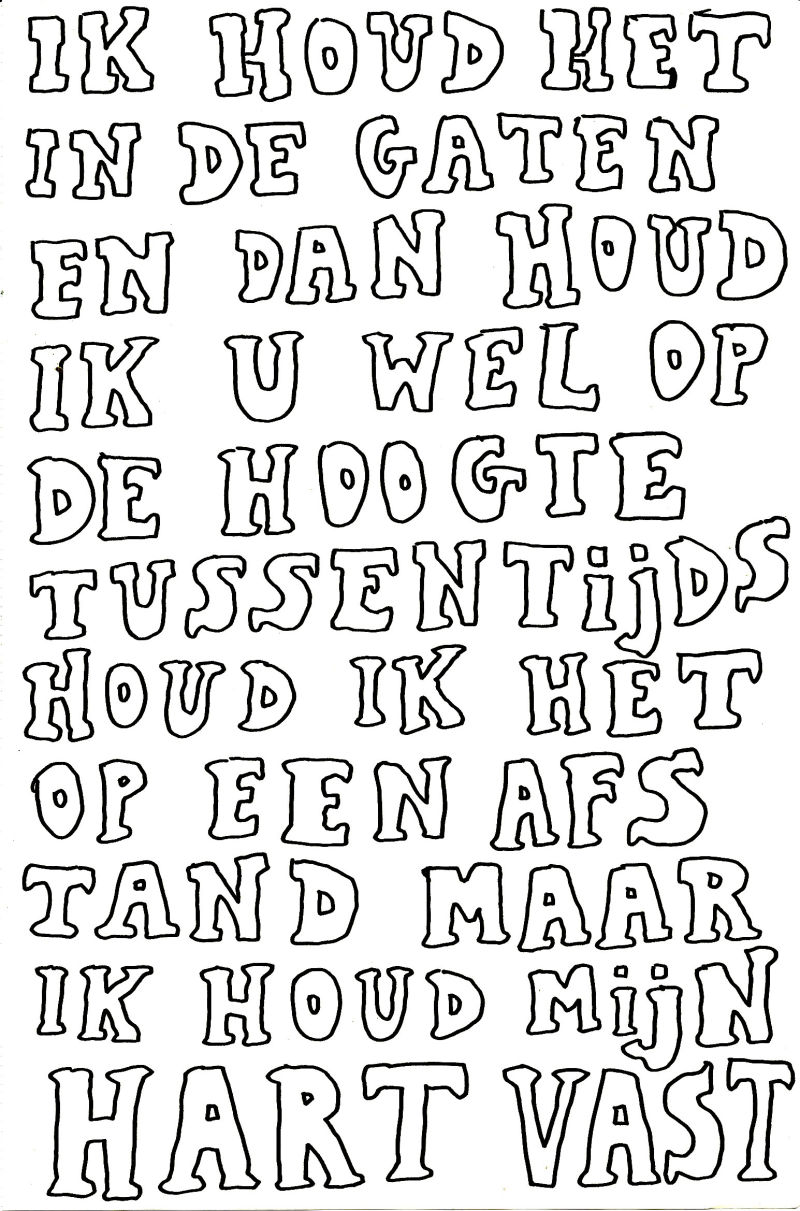 IK HOUD HET
IN DE GATEN
EN DAN HOUD
IK U WEL OP
DE HOOGTE
TUSSENTijDS
HOUD IK HET
OP EEN AFS
TAND MAAR
IK HOUD MijN
HART VAST